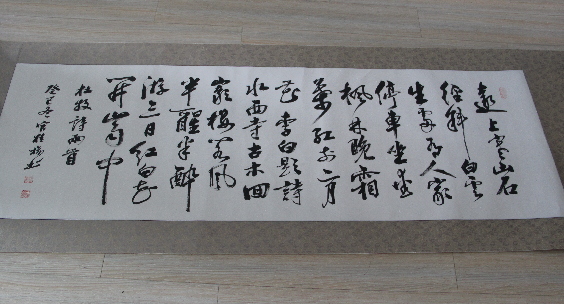 遠上寒山石
徑斜白雲
生處有人家
停車坐愛
楓林晚霜
葉紅於二月
花李白題詩
水西寺古木回
巖樓閣風
半醒半醉
游三日紅白花
開山雨中
杜牧詩兩首
癸巳冬